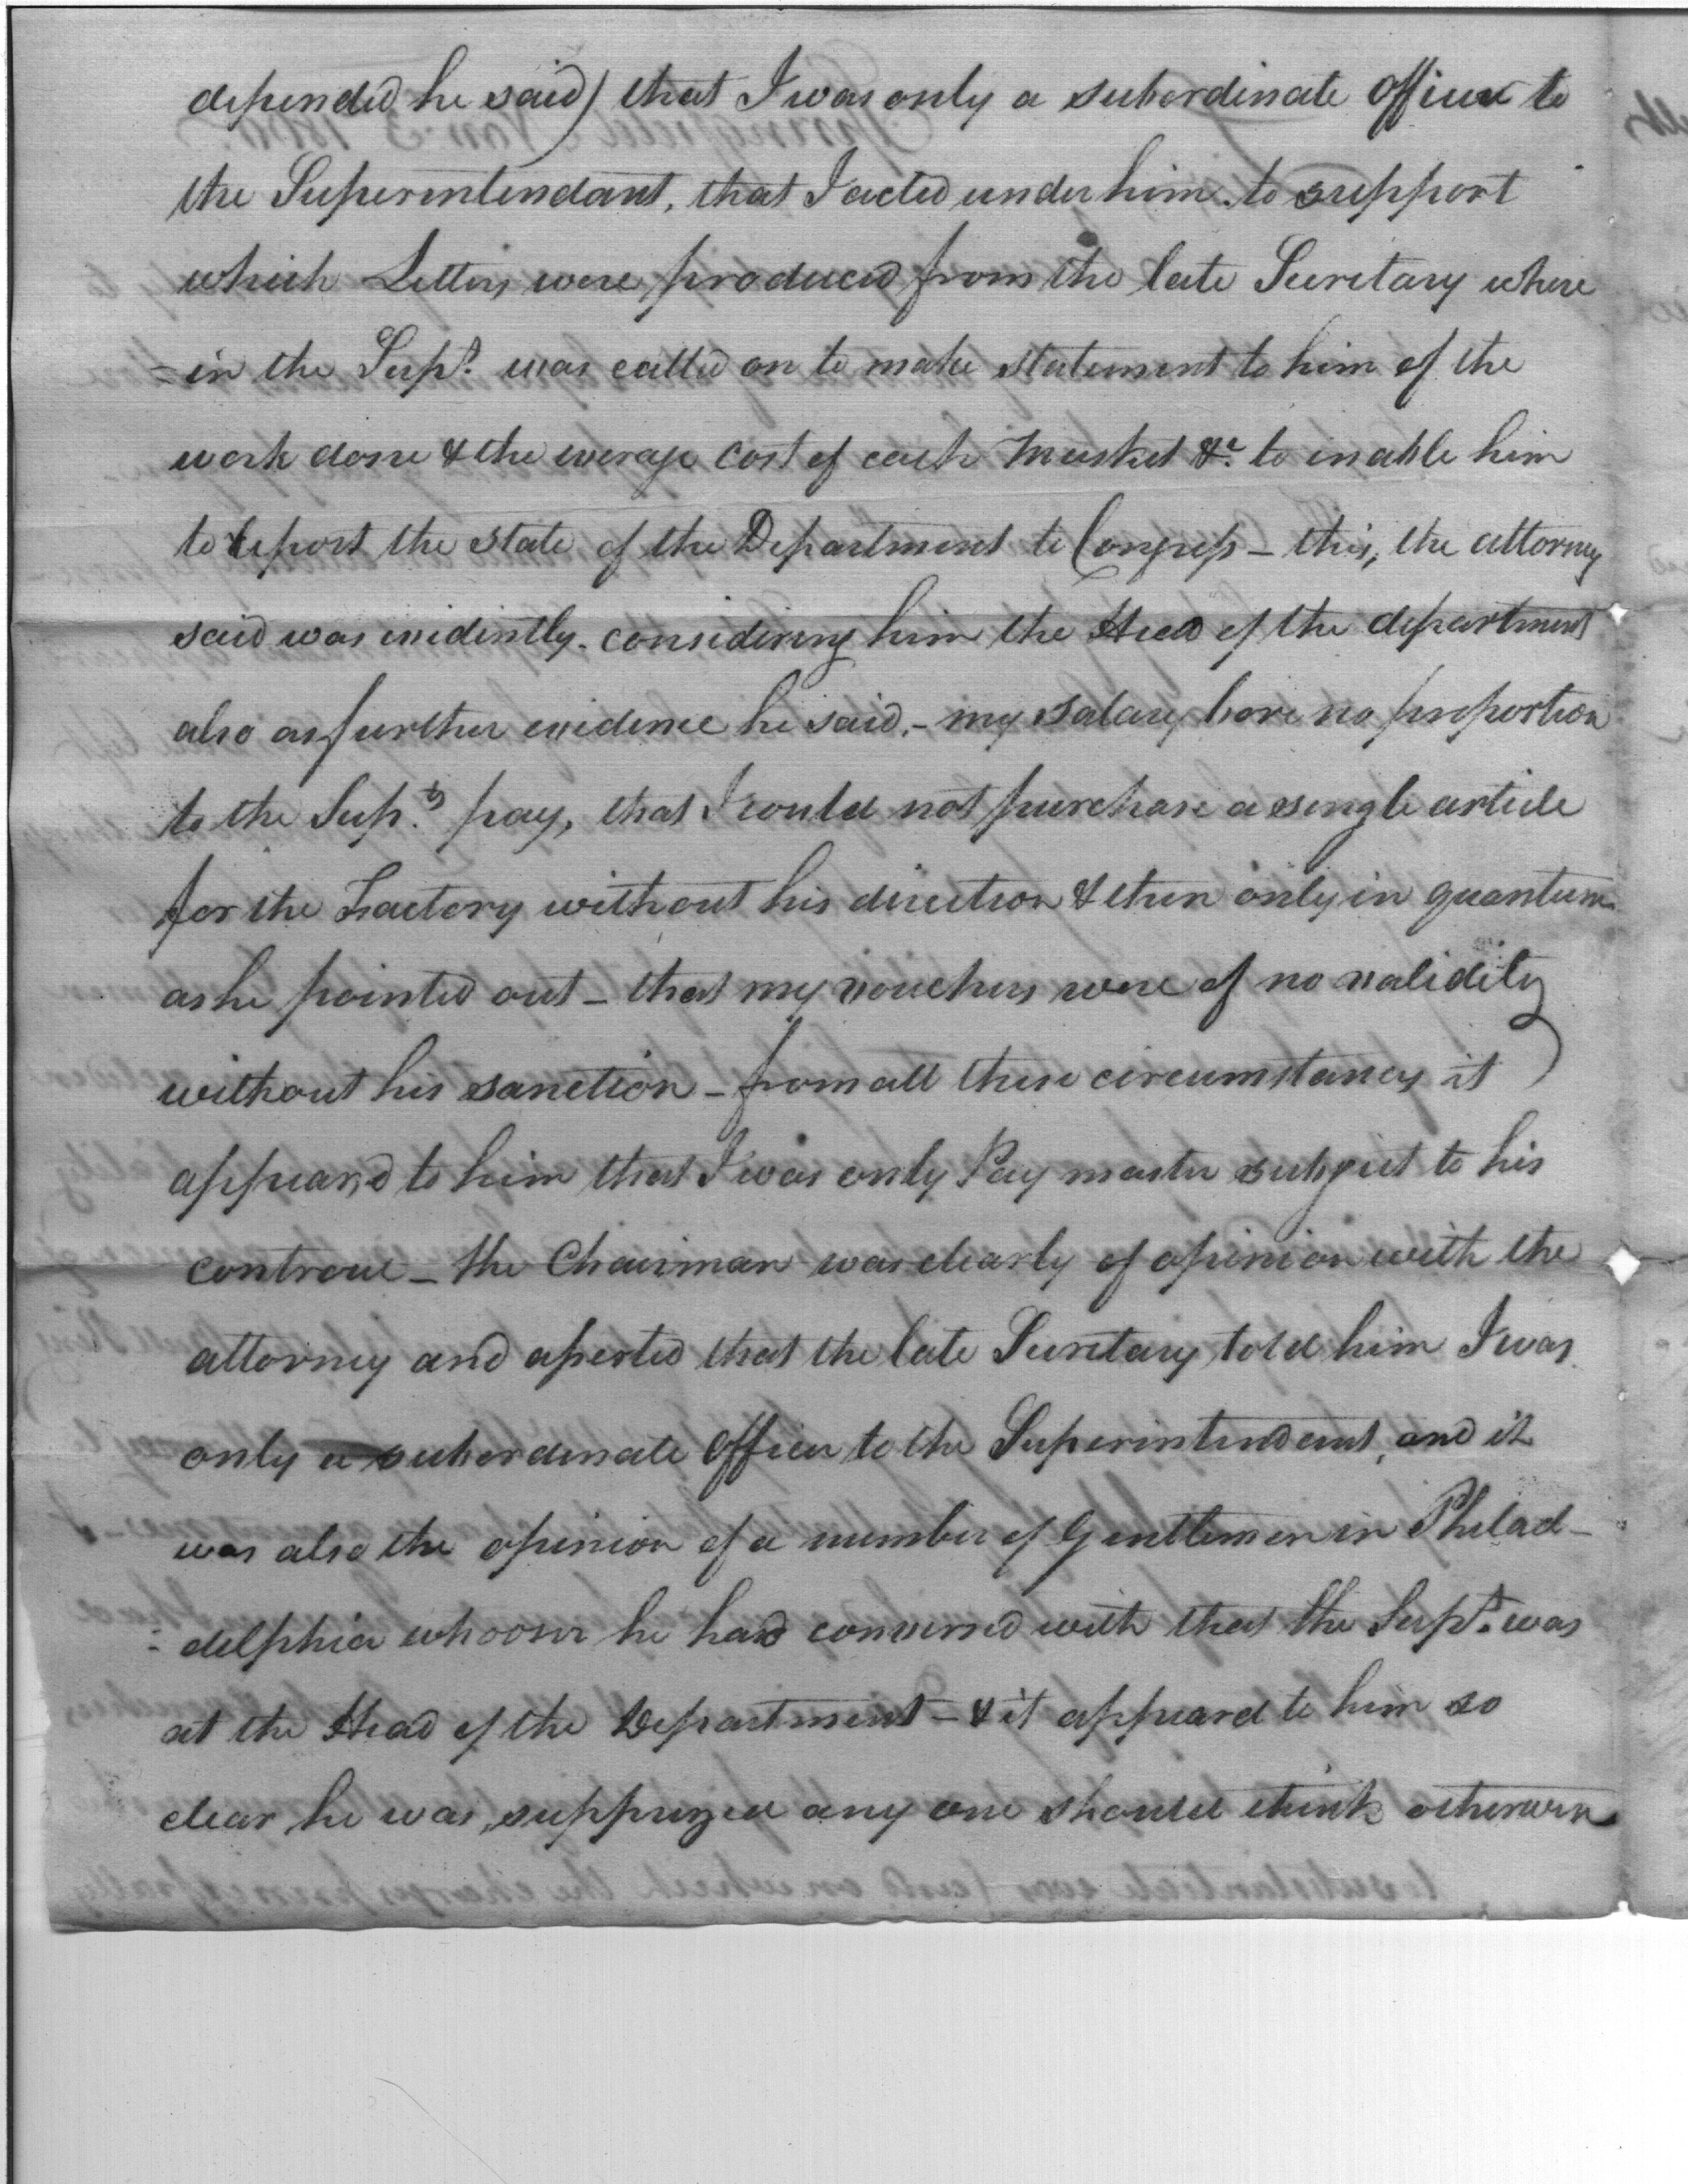 depended he said) that I was only a subordinate Officer to
the Superintendant, that I acted under him. to support
which Letters were produced from the late Secretary where
=in the Supt. was called on to make statement to him of the
work done & the average Cost of each Musket &c. to inable him
to report the state of the Department to Congress - this, the attorney
said was evidently considering him the Head of the department
also as further evidence he said, - my salary bore no proportion
to the Supts. pay, that I could not purchase a single article
for the Factory without his direction & then only in quantum
as he pointed out - that my vouchers were of no validity
without his sanction - from all these circumstances it
appear,d to him that I was only Pay master subject to his
controul - the Chairman was clearly of opinion with the
attorney and asserted that the late Secretary told him I was
only a subordinate Officer to the Superintendant, and it
was also the opinion of a number of Gentlemen in Philad-
=delphia whoom he had conversed with that the Supt. was
at the Head of the Department - & it appeard to him so
clear he was supprized any one should think otherwise